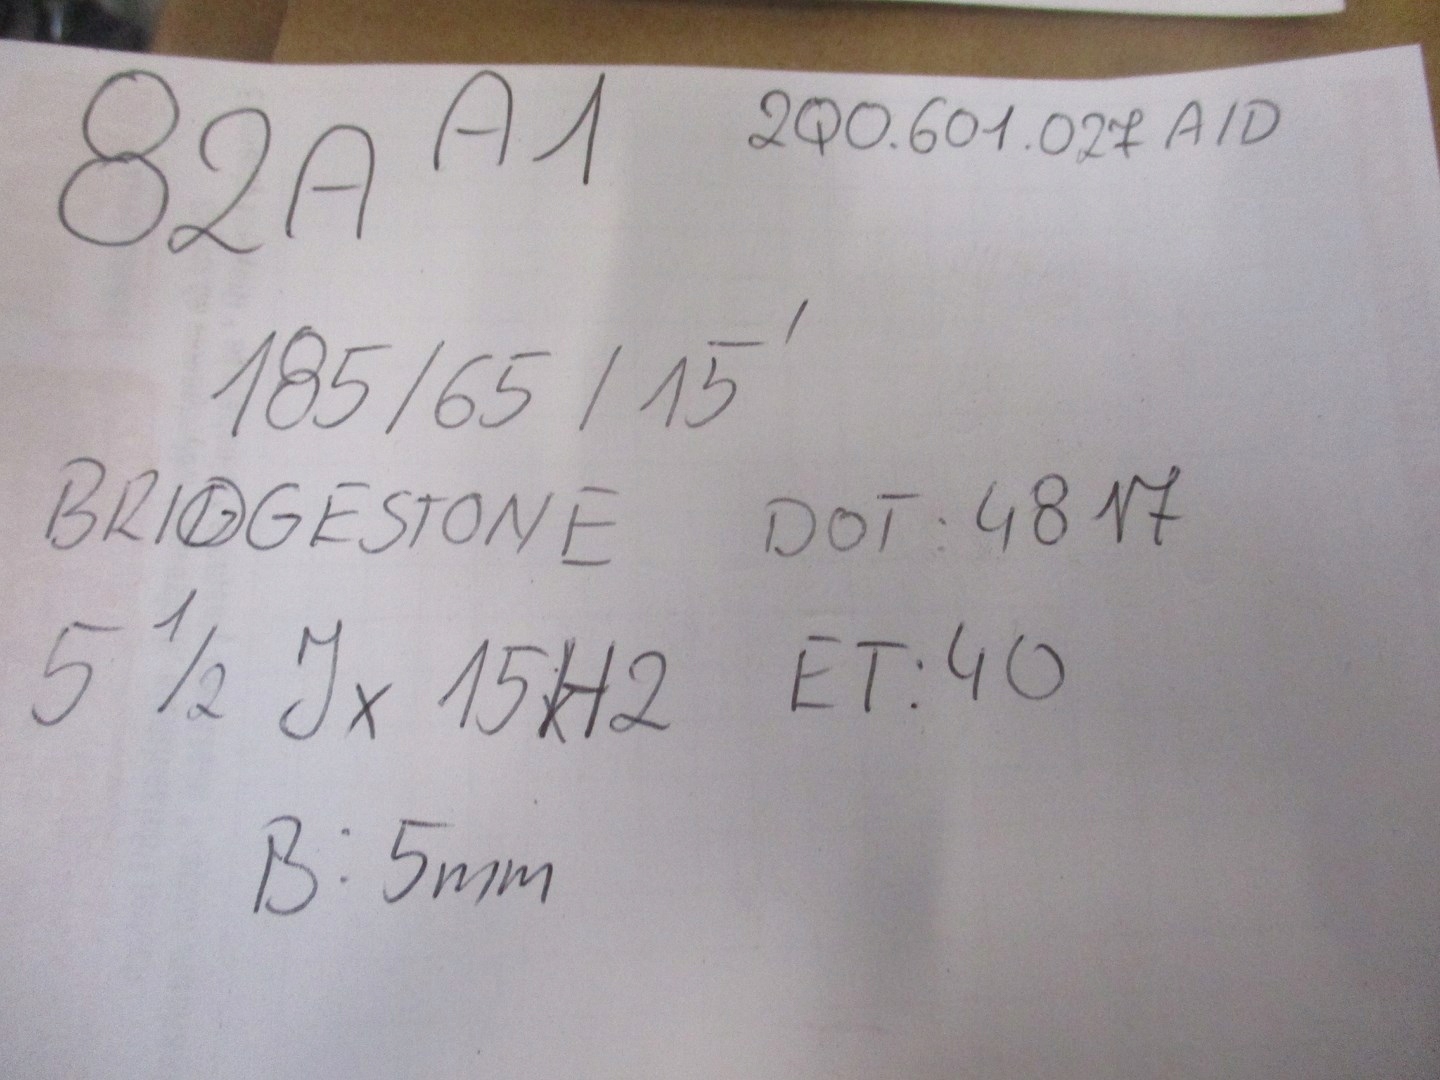 82A A1 2Q0.601.027 A/D
185/65/15'
BRIDGESTONE DOT: 4817
5 1/2 Jx 15xH2 ET: 40
B: 5mm